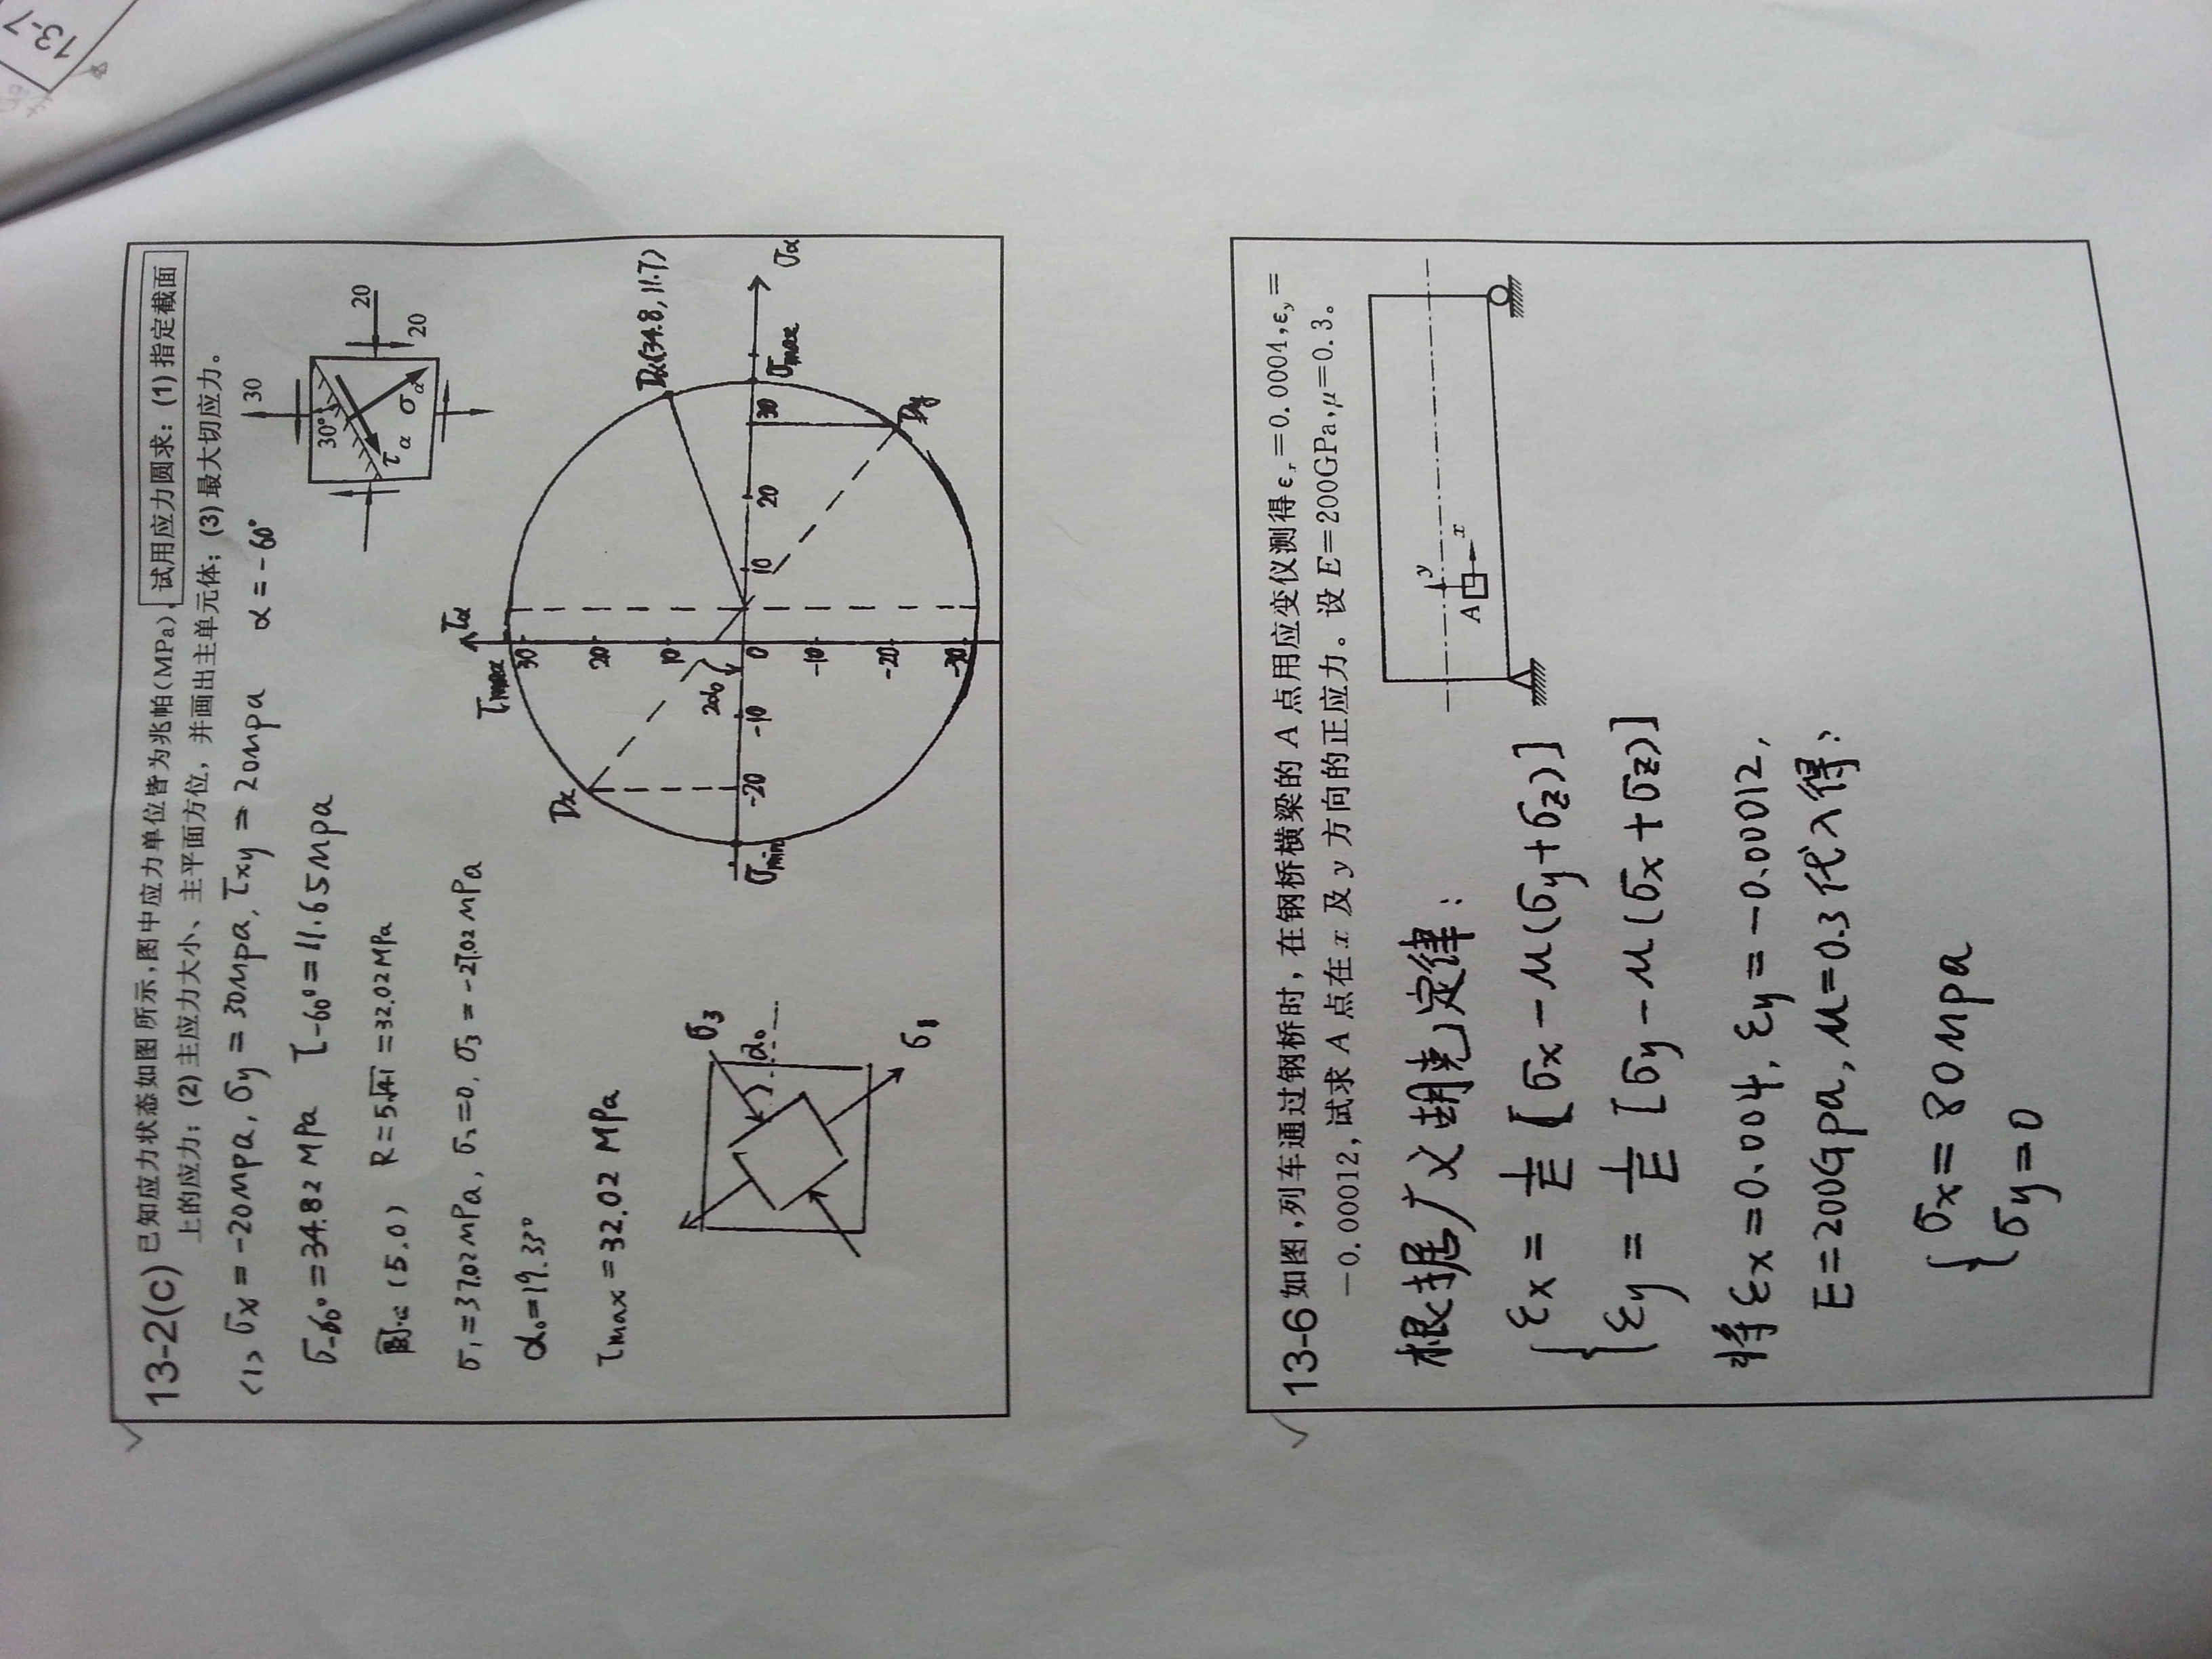 13-7
13-2(c) 已知应力状态如图所示,图中应力单位皆为兆帕(MPa), 试用应力圆求:(1)指定截面
上的应力;(2)主应力大小、主平面方位,并画出主单元体;(3)最大切应力。
(1) σx=-20mpa, σy=30mpa, τxy=20mpa α=-60°
σ-60°=34.82MPa τ-60°=11.65mpa
(5.0) R=5√41=32.02MPa
σ1=37.02mPa, σ2=0, σ3=-27.02mPa
α0=19.33°
τmax=32.02 MPa
30
20
20
30°
τα
σα
σ3
α0
σ1
τα
τmax
30
20
10
0
-10
-20
-30
Dx
2α0
-20
-10
10
20
30
σmin
σmax
σα
Dα(34.8,11.7)
Dy
13-6 如图,列车通过钢桥时,在钢桥横梁的 A 点用应变仪测得 εx=0.0004,εy=
-0.00012,试求 A 点在 x 及 y 方向的正应力。设 E=200GPa,μ=0.3。
A
y
x
根据广义胡克定律:
εx=1/E[σx-μ(σy+σz)]
εy=1/E[σy-μ(σx+σz)]
将εx=0.004, εy=-0.00012,
E=200Gpa, μ=0.3代入得:
σx=80mpa
σy=0